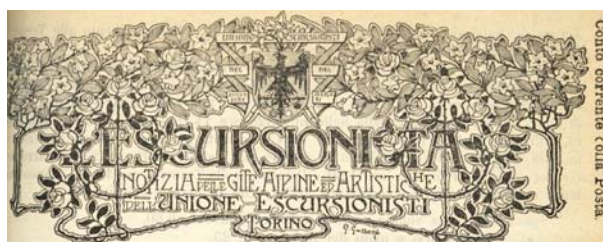 L'ESCURSIONISTA
NOTIZIA DELLE GITE ALPINE ED ARTISTICHE
DELL'UNIONE ESCURSIONISTI
TORINO
Conto corrente colla Posta